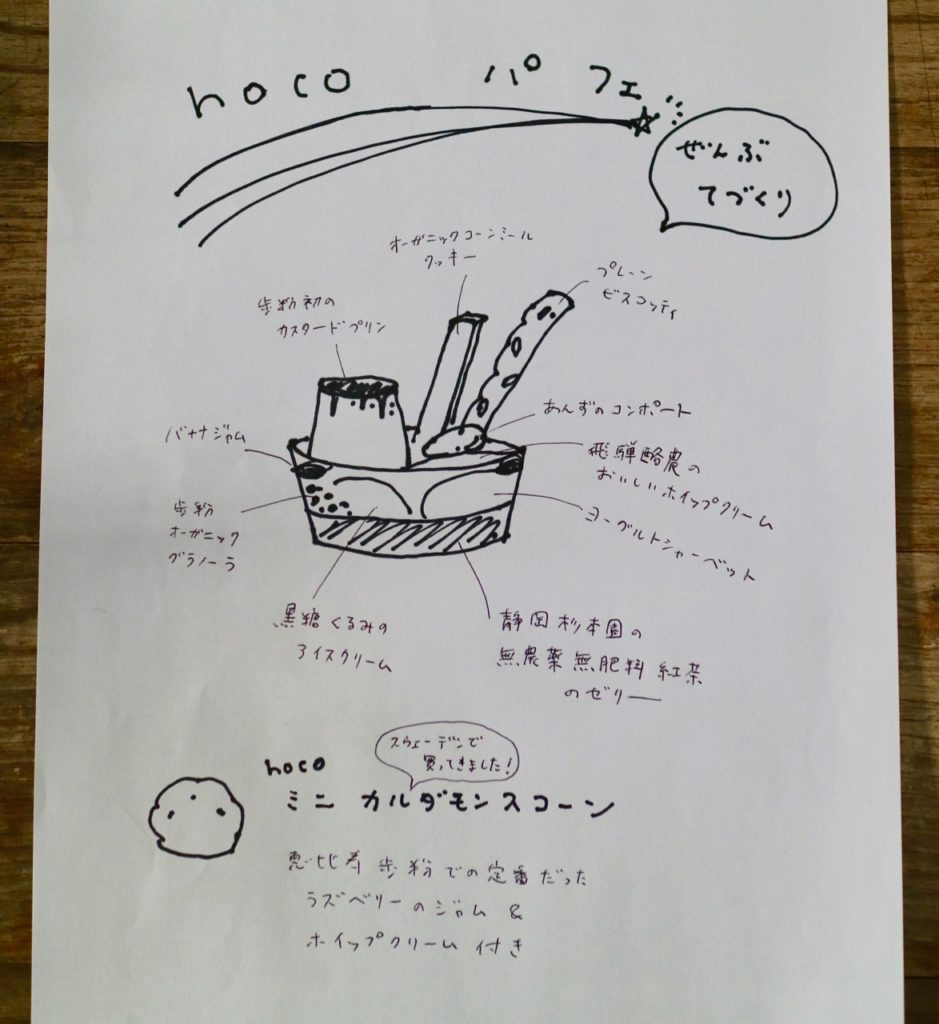 hoco パフェ
ぜんぶ
てづくり
オーガニックコーンミール
クッキー
プレーン
ビスコッティ
歩粉初の
カスタードプリン
あんずのコンポート
バナナジャム
飛騨酪農の
おいしいホイップクリーム
歩粉
オーガニック
グラノーラ
ヨーグルトシャーベット
黒糖くるみの
アイスクリーム
静岡杉本園の
無農薬無肥料紅茶
のゼリー
スウェーデンで
買ってきました!
hoco
ミニ カルダモンスコーン
恵比寿歩粉での定番だった
ラズベリーのジャム &
ホイップクリーム付き